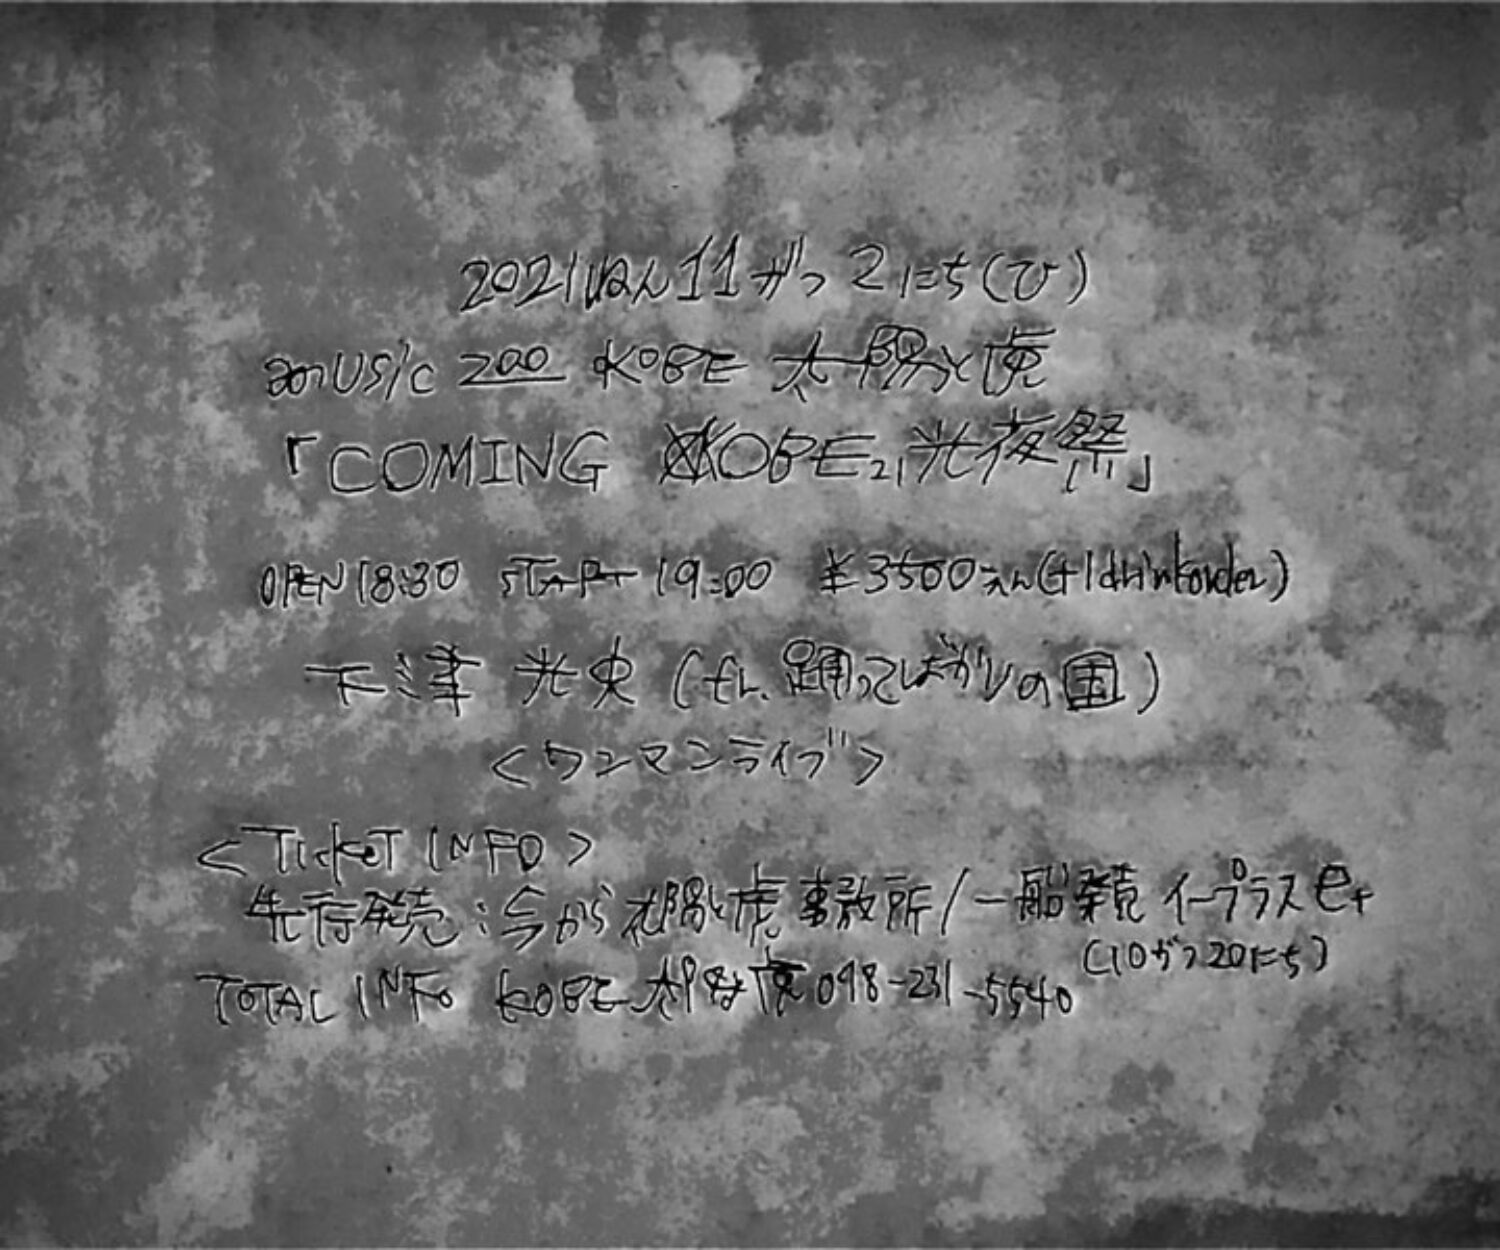 2021ねん11がつ2にち(ひ)
music zoo KOBE 太陽と虎
「COMING KOBE21光夜祭」
OPEN18:30 START 19:00 ¥3500えん(+1drinkorder)
下津 光史 (fr. 踊ってばかりの国)
<ワンマンライブ>
<TickeT INFO>
先行発売:今から太陽と虎 事務所/一船発売 イープラス e+
(10がつ20にち)
TOTAL INFO KOBE 太陽と虎 098-231-5540